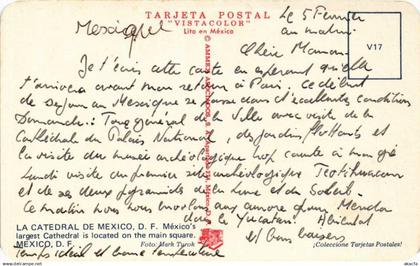 TARJETA POSTAL
"VISTACOLOR"
Lito en México
Mexique
Le 5 Février
au matin
V17
Chère Maman
Je t'écris cette carte en espérant qu'elle
t'arrivera avant mon retour à Paris. Ce début
de séjour au Mexique se passe dans d'excellentes conditions
Dimanche: Tour général de la Ville avec visite de la
Cathédrale du Palais National, des jardins flottants et
la visite du musée archéologique
Lundi visite du premier site archéologique Teotihuacan
et de ses deux pyramides de la Lune et du Soleil.
Ce matin nous nous envolons pour Merida
dans le Yucatan. A bientôt
et bons baisers
LA CATEDRAL DE MEXICO, D. F. México's
largest Cathedral is located on the main square.
MEXICO, D. F.
Foto: Mark Turok
¡Coleccione Tarjetas Postales!
Temps idéal et bonne température